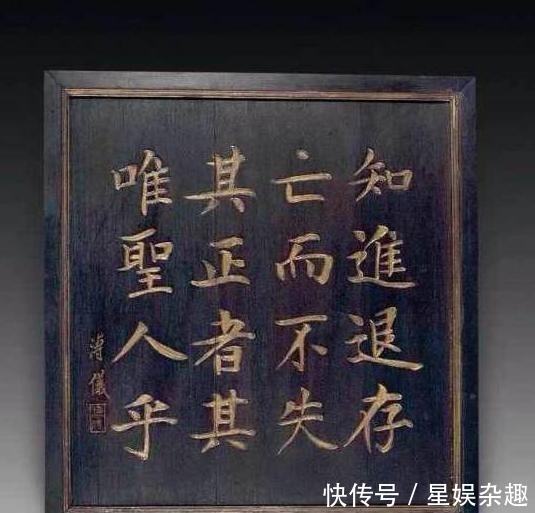 知進退存
亡而不失
其正者其
唯聖人乎
溥儀
快传号/星娱杂趣